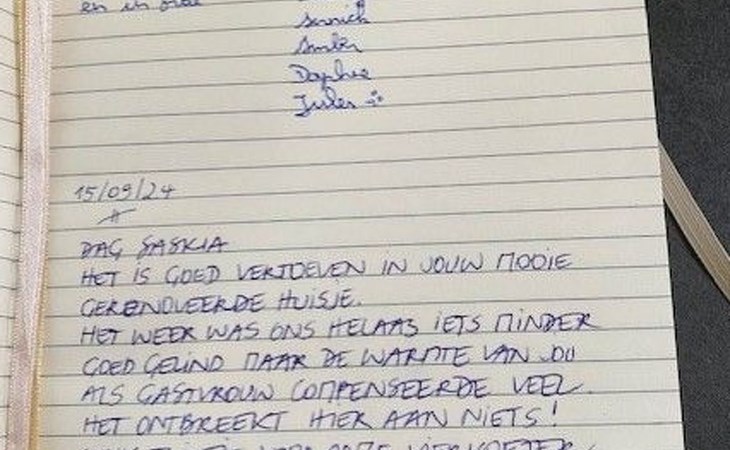 en in
Amber
Daphne
Jules
15/09/24
DAG SASKIA
HET IS GOED VERTOEVEN IN JOUW MOOIE
GERENOVEERDE HUISJE.
HET WEER WAS ONS HELAAS IETS MINDER
GOED GEZIND MAAR DE WARMTE VAN JOU
ALS GASTVROUW COMPENSEERDE VEEL.
HET ONTBREEKT HIER AAN NIETS!
VOOR ONZE VIERVOETER